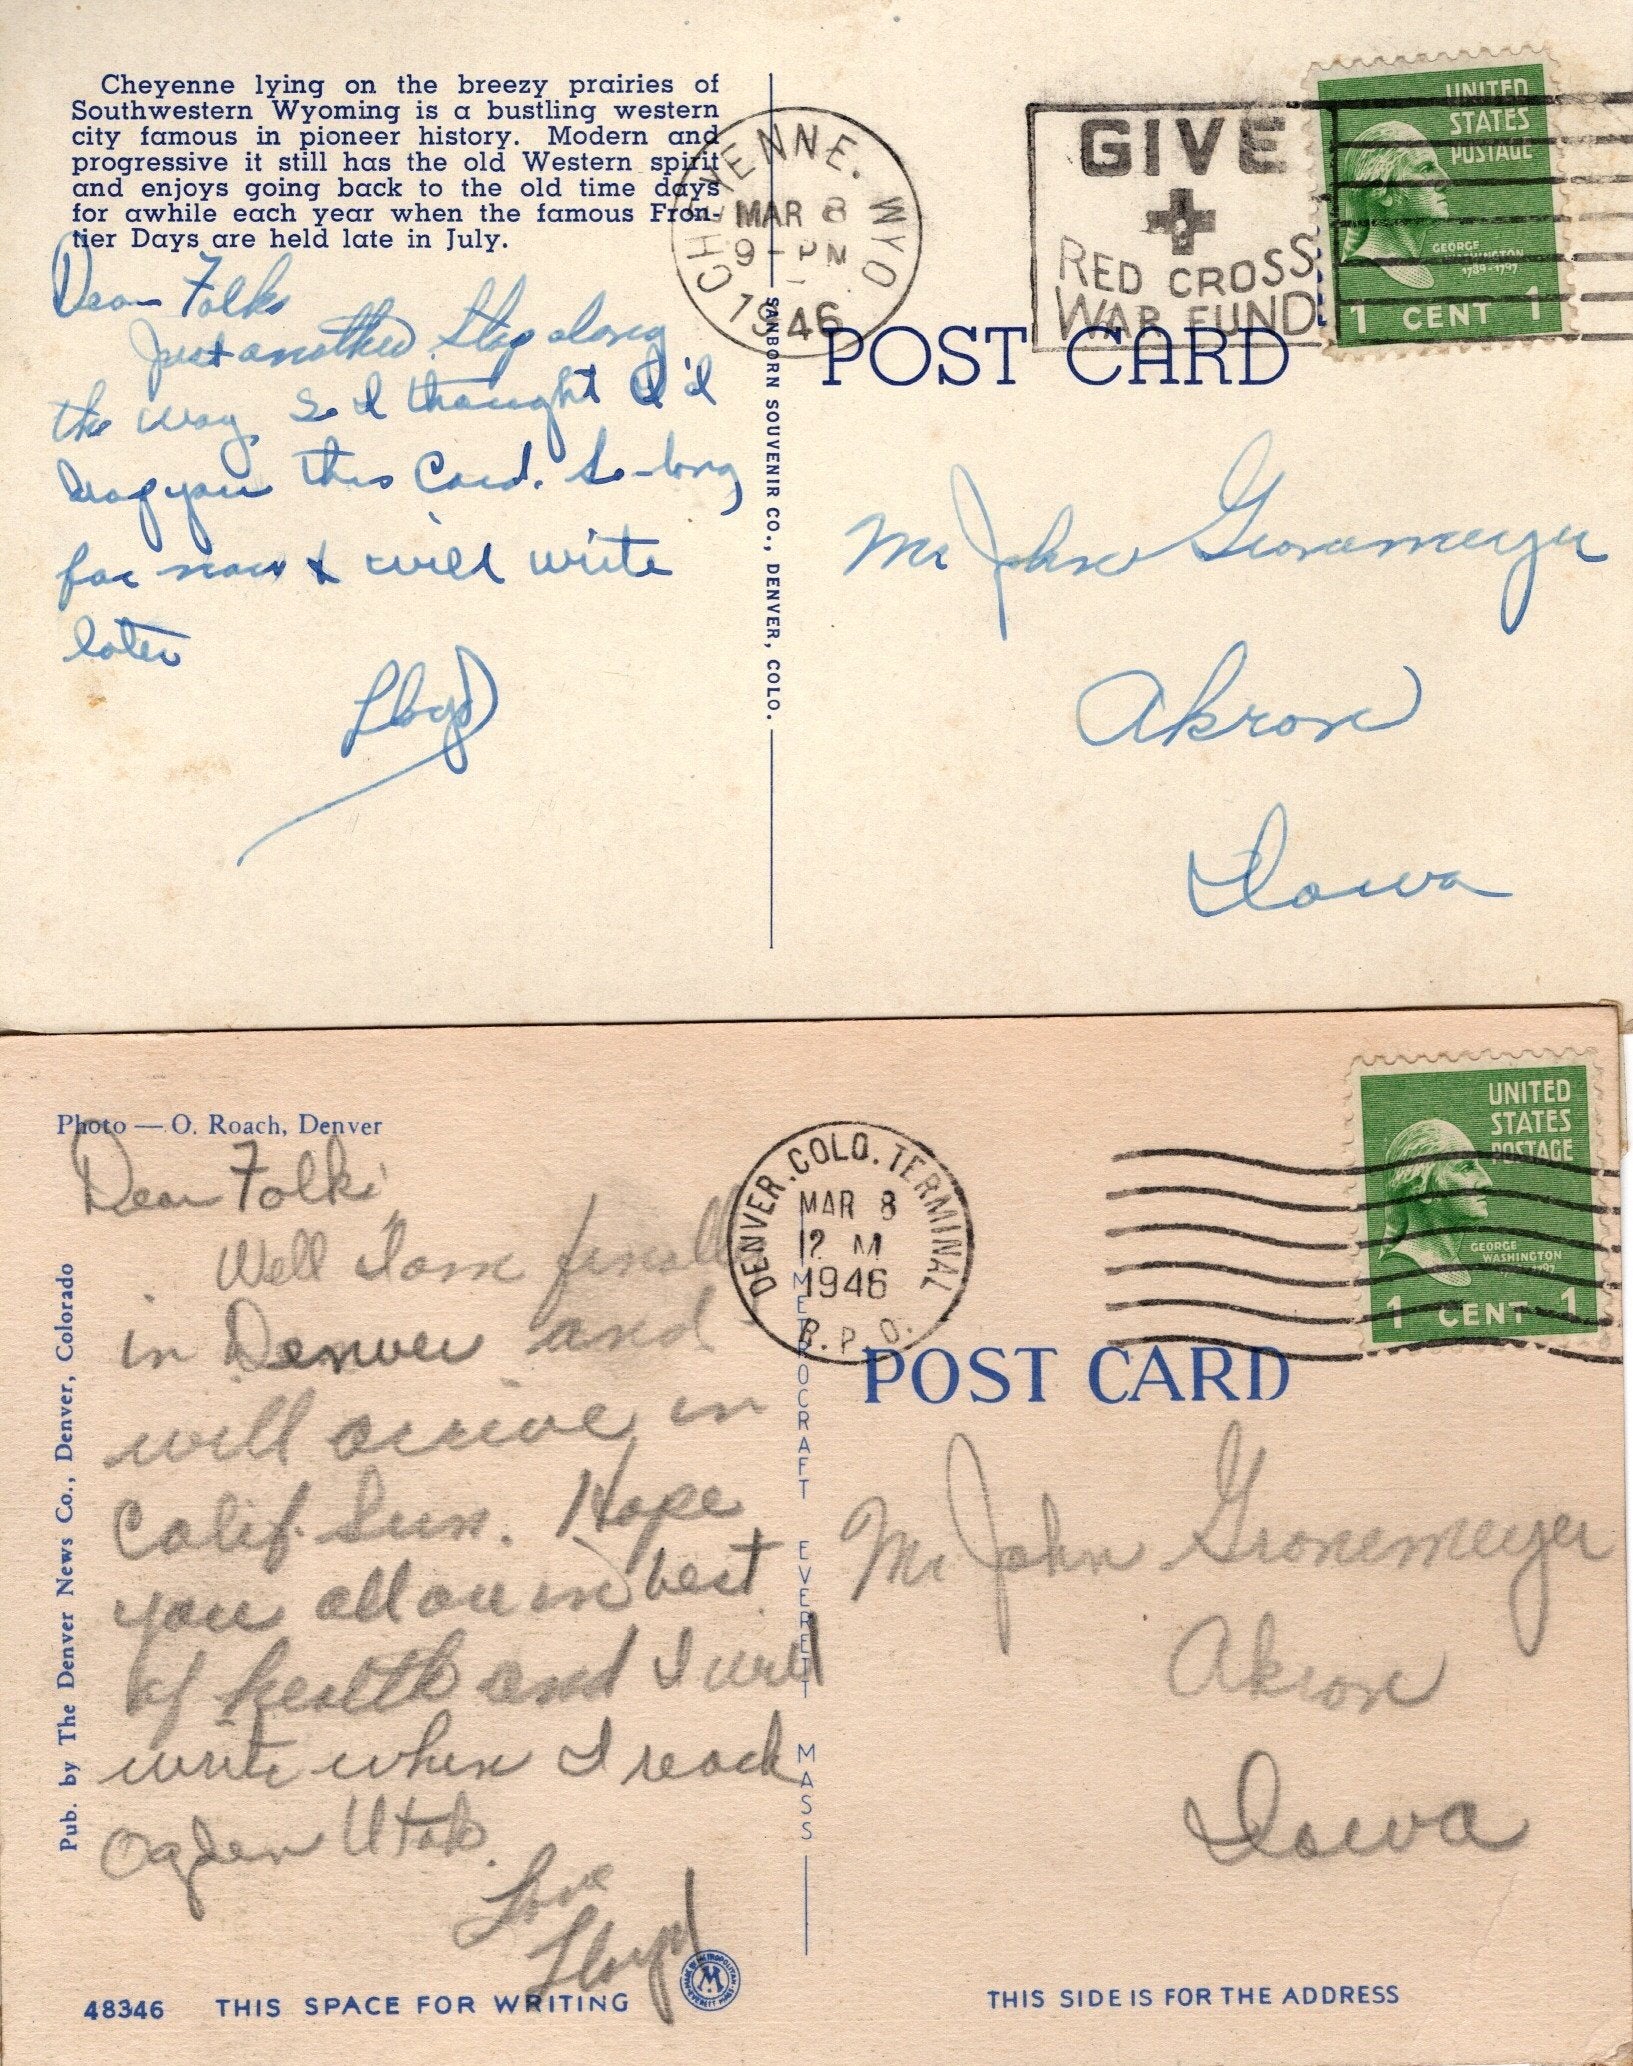 Cheyenne lying on the breezy prairies of
Southwestern Wyoming is a bustling western
city famous in pioneer history. Modern and
progressive it still has the old Western spirit
and enjoys going back to the old time days
for awhile each year when the famous Fron-
tier Days are held late in July.
Dear Folks
Just another Stop along
the way So I thought I'd
drop you this Card. So-long
for now & will write
later
Lloyd
SANBORN SOUVENIR CO., DENVER, COLO.
CHEYENNE. WYO
MAR 8
9 - PM
1946
GIVE
RED CROSS
WAR FUND
UNITED
STATES
POSTAGE
GEORGE
WASHINGTON
1789-1797
1 CENT 1
POST CARD
Mr John Gronemeyer
Akron
Iowa
Photo — O. Roach, Denver
Dear Folks
Well I am finally
in Denver and
will arrive in
Calif. Sun. Hope
you all are in best
of health and I will
write when I reach
Ogden Utah.
Love
Lloyd
Pub. by The Denver News Co., Denver, Colorado
48346 THIS SPACE FOR WRITING
METROCRAFT EVERETT MASS
DENVER. COLO. TERMINAL
MAR 8
12 M
1946
R. P. O.
UNITED
STATES
POSTAGE
GEORGE
WASHINGTON
1 CENT 1
POST CARD
Mr John Gronemeyer
Akron
Iowa
THIS SIDE IS FOR THE ADDRESS